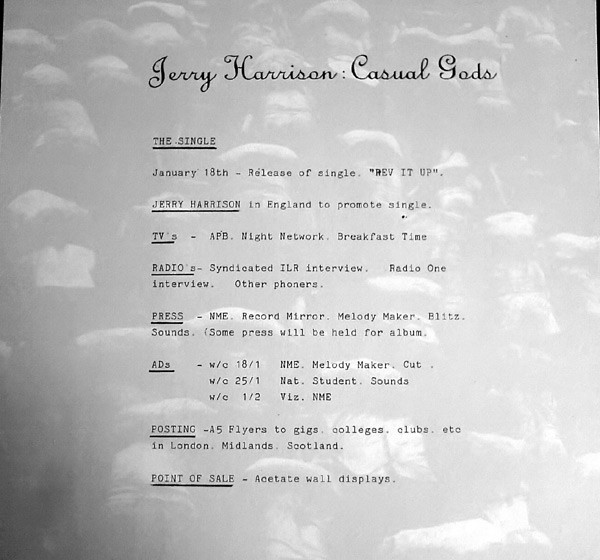 Jerry Harrison: Casual Gods
THE SINGLE
January 18th - Release of single. "REV IT UP".
JERRY HARRISON in England to promote single.
TV's - APB. Night Network. Breakfast Time
RADIO's- Syndicated ILR interview. Radio One
interview. Other phoners.
PRESS - NME. Record Mirror. Melody Maker. Blitz.
Sounds. (Some press will be held for album.
ADs - w/c 18/1 NME. Melody Maker. Cut .
w/c 25/1 Nat. Student. Sounds
w/c 1/2 Viz. NME
POSTING -A5 Flyers to gigs. colleges. clubs. etc
in London. Midlands. Scotland.
POINT OF SALE - Acetate wall displays.